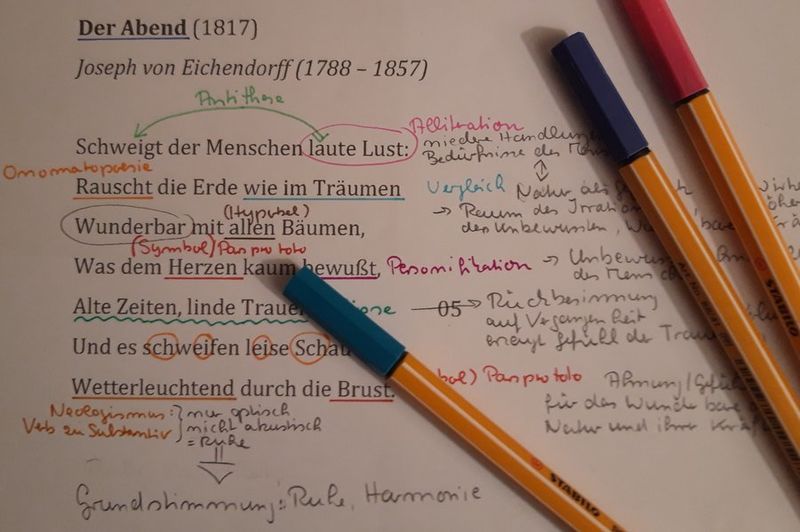 Der Abend (1817)
Joseph von Eichendorff (1788 – 1857)
Antithese
Schweigt der Menschen laute Lust:
Alliteration
niedere Handlung
Bedürfnisse des Men
Onomatopoesie
Rauscht die Erde wie im Träumen
Vergleich
Natur als
→ Raum des Irration
des Unbewussten,
(Hyperbel)
Wunderbar mit allen Bäumen,
(Symbol) Pars pro toto
Was dem Herzen kaum bewußt,
Personifikation → Unbewuss
des Mensch
Alte Zeiten, linde Trauer
05 → Rückbesinnung
auf Vergangenheit
erzeugt Gefühl der Trau
Und es schweifen leise Schau
Wetterleuchtend durch die Brust.
bol) Pars pro toto
Ahnung/Gefühl
für das Wunderbare
Natur und ihrer Kräf
Neologismus:
Verb zu Substantiv
nur optisch
nicht akustisch
= Ruhe
Grundstimmung: Ruhe, Harmonie
STABILO
STABILO
STABILO